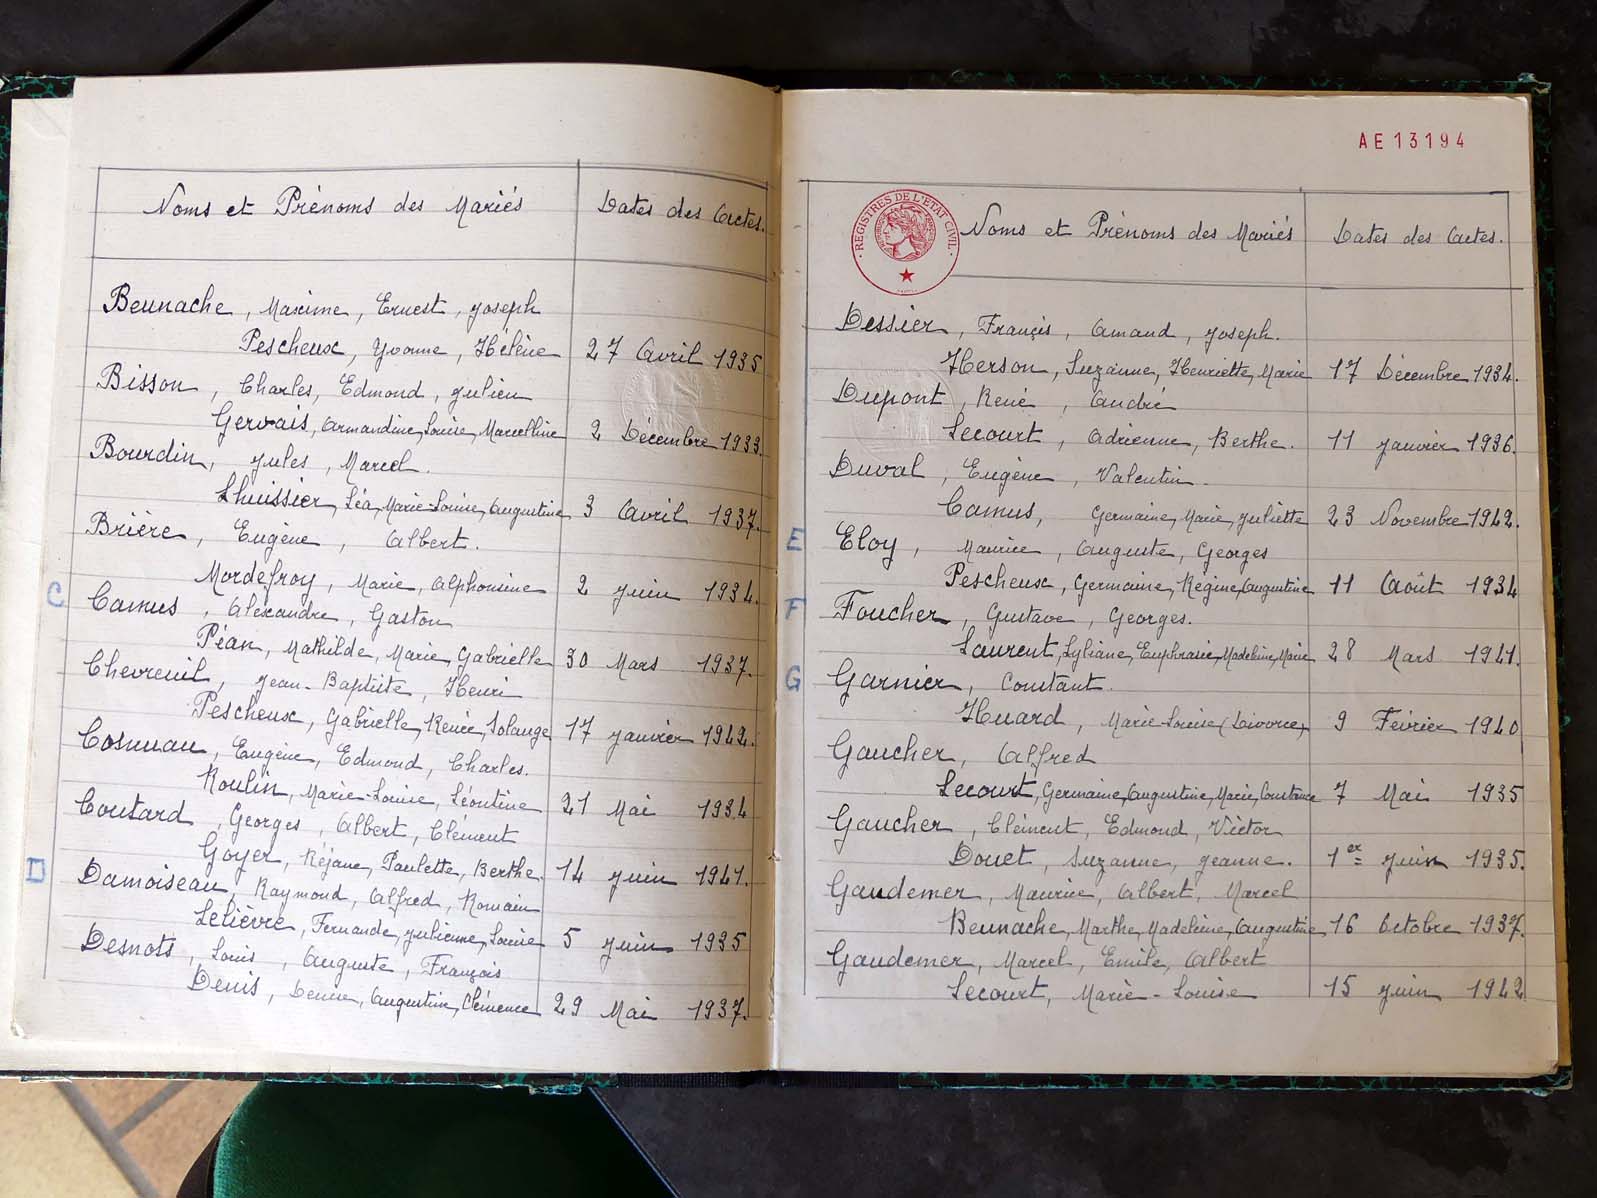 Noms et Prénoms des Mariés Dates des Actes.
Beunache, Maxime, Ernest, Joseph
Pescheux, Yvonne, Hélène 27 Avril 1935
Bisson, Charles, Edmond, Julien
Gervais, Armandine, Louise, Marcelline 2 Décembre 1933.
Bourdin, Jules, Marcel.
Lhuissier, Léa, Marie-Louise, Augustine 3 Avril 1937.
Brière, Eugène, Albert.
Mordefroy, Marie, Alphonsine 2 Juin 1934.
C Camus, Alexandre, Gaston
Péan, Mathilde, Marie, Gabrielle 30 Mars 1937.
Chevreuil, Jean-Baptiste, Henri
Pescheux, Gabrielle, Renée, Solange 17 Janvier 1942.
Cosnuau, Eugène, Edmond, Charles.
Roulin, Marie-Louise, Léontine 21 Mai 1934
Coutard, Georges, Albert, Clément
Goyer, Réjane, Paulette, Berthe. 14 Juin 1941.
D Damoiseau, Raymond, Alfred, Romain
Lelièvre, Fernande, Julienne, Louise 5 Juin 1935
Desnots, Louis, Auguste, François
Denis, Denise, Augustine, Clémence 29 Mai 1937.
AE 13194
REGISTRES DE L'ETAT CIVIL
Noms et Prénoms des Mariés Dates des Actes.
Dessier, Françis, Amand, Joseph.
Herson, Suzanne, Henriette, Marie 17 Décembre 1934.
Dupont, René, André
Lecourt, Adrienne, Berthe. 11 Janvier 1936.
Duval, Eugène, Valentin.
Camus, Germaine, Marie, Juliette 23 Novembre 1942.
E Eloy, Maurice, Auguste, Georges
Pescheux, Germaine, Régine, Augustine 11 Août 1934
F Foucher, Gustave, Georges.
Laurent, Lyliane, Euphrasie, Madeleine, Marie 28 Mars 1941.
G Garnier, Constant.
Huard, Marie-Louise (Divorce) 9 Février 1940
Gaucher, Alfred
Lecourt, Germaine, Augustine, Marie, Constance 7 Mai 1935
Gaucher, Clément, Edmond, Victor
Douet, Suzanne, Jeanne. 1er Juin 1935.
Gaudemer, Maurice, Albert, Marcel
Beunache, Marthe, Madeleine, Augustine 16 Octobre 1937.
Gaudemer, Marcel, Emile, Albert
Lecourt, Marie-Louise 15 Juin 1942